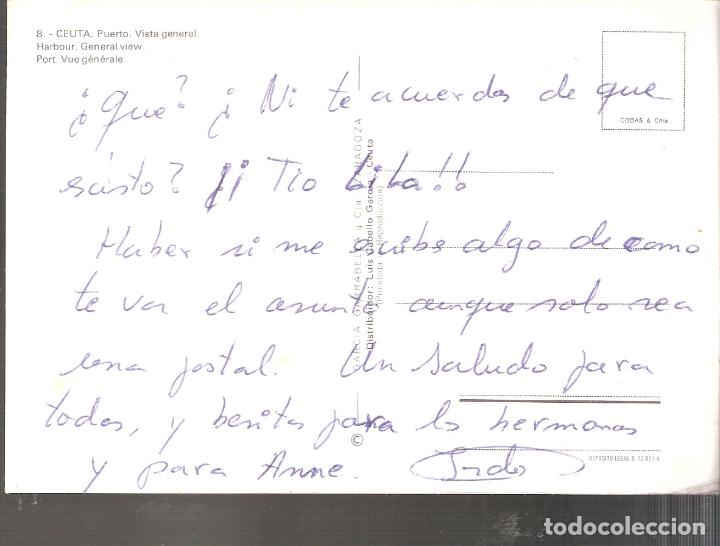 8. - CEUTA. Puerto. Vista general.
Harbour. General view.
Port. Vue générale.
COBAS & Cnia
¿Que? ¿Ni te acuerdas de que
existo? ¡¡Tio bita!!
Haber si me scribs algo de como
te va el asunto aunque solo sea
una postal. Un saludo para
todos, y besitos para ls hermanas
y para Anne.
© GARCIA GARRABELLA y Cia. ZARAGOZA
Distribuidor: Luis Cabello Garcia. Ceuta
(Prohibida la Reproducción)
DEPOSITO LEGAL B.
todocoleccion.net